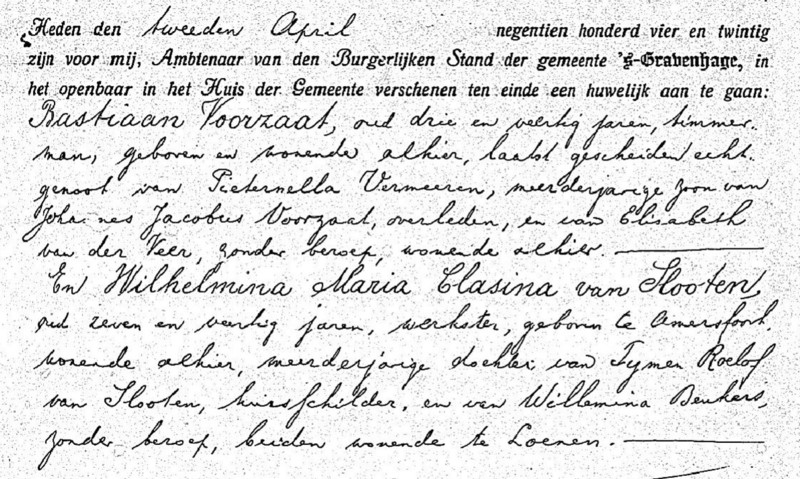 Heden den tweeden April negentien honderd vier en twintig
zijn voor mij, Ambtenaar van den Burgerlijken Stand der gemeente 's-Gravenhage, in
het openbaar in het Huis der Gemeente verschenen ten einde een huwelijk aan te gaan:
Bastiaan Voorzaat, oud drie en veertig jaren, timmer-
man, geboren en wonende alhier, laatst gescheiden echt-
genoot van Pieternella Vermeeren, meerderjarige zoon van
Johannes Jacobus Voorzaat, overleden, en van Elisabeth
van der Veer, zonder beroep, wonende alhier.
En Wilhelmina Maria Clasina van Slooten,
oud zeven en veertig jaren, werkster, geboren te Amersfoort,
wonende alhier, meerderjarige dochter van Tymen Roelof
van Slooten, huisschilder, en van Willemina Beukers,
zonder beroep, beiden wonende te Loenen.